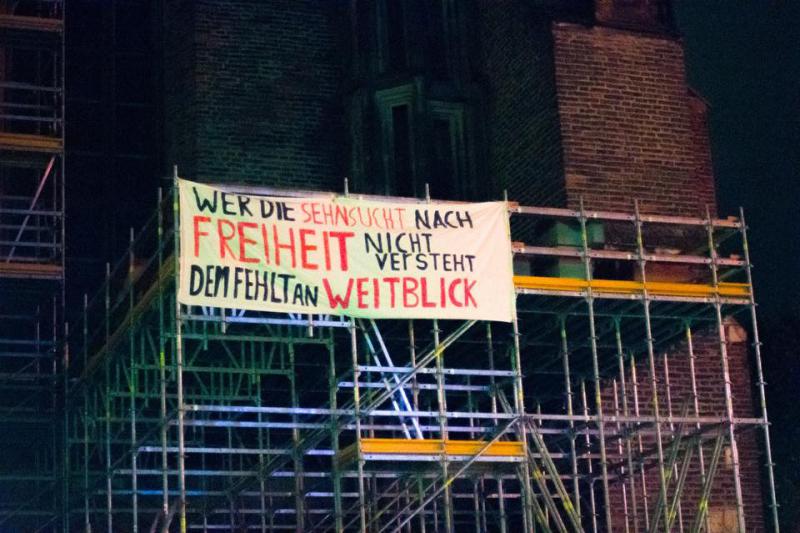 WER DIE SEHNSUCHT NACH
FREIHEIT NICHT
VERSTEHT
DEM FEHLT AN WEITBLICK